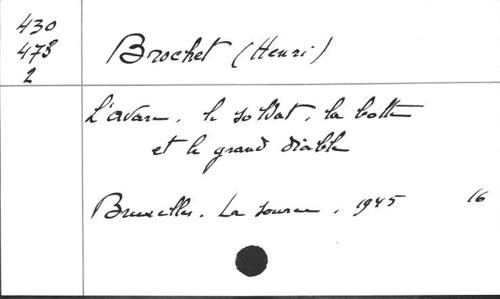 430
478
2
Brochet (Henri)
L'avare, le soldat, la botte
et le grand diable
Bruxelles. La source, 1945 16